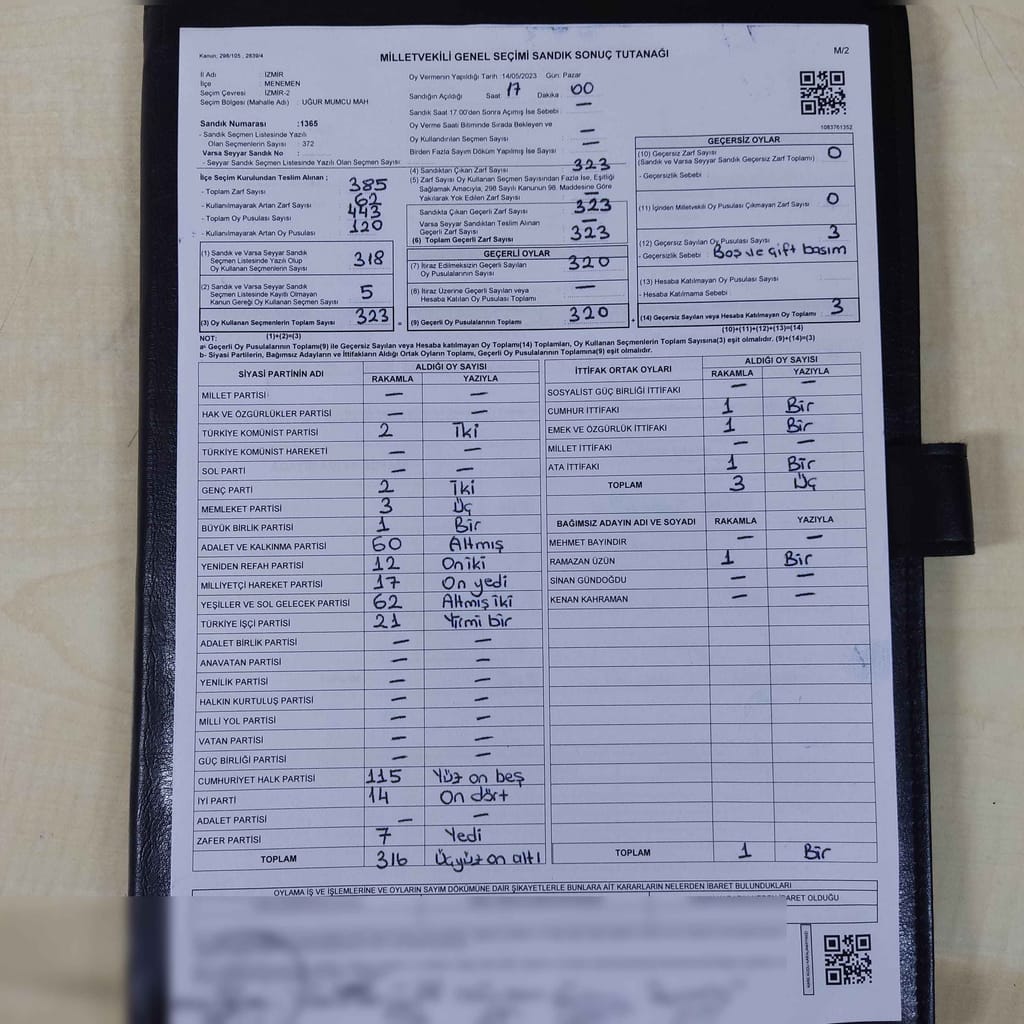 Kanun: 298/105 , 2839/4
MİLLETVEKİLİ GENEL SEÇİMİ SANDIK SONUÇ TUTANAĞI
M/2
İl Adı : İZMİR
İlçe : MENEMEN
Seçim Çevresi : İZMİR-2
Seçim Bölgesi (Mahalle Adı) : UĞUR MUMCU MAH
Sandık Numarası :1365
- Sandık Seçmen Listesinde Yazılı
Olan Seçmenlerin Sayısı : 372
Varsa Seyyar Sandık No :
- Seyyar Sandık Seçmen Listesinde Yazılı Olan Seçmen Sayısı:
Oy Vermenin Yapıldığı Tarih :14/05/2023 Gün: Pazar
Sandığın Açıldığı Saat : 17 Dakika : 00
Sandık Saat 17:00'den Sonra Açımış İse Sebebi : —
Oy Verme Saati Bitiminde Sırada Bekleyen ve
Oy Kullandırılan Seçmen Sayısı : —
Birden Fazla Sayım Döküm Yapılmış İse Sayısı : —
1083761352
İlçe Seçim Kurulundan Teslim Alınan ;
- Toplam Zarf Sayısı : 385
- Kullanılmayarak Artan Zarf Sayısı : 62
- Toplam Oy Pusulası Sayısı : 443
- Kullanılmayarak Artan Oy Pusulası : 120
(1) Sandık ve Varsa Seyyar Sandık
Seçmen Listesinde Yazılı Olup
Oy Kullanan Seçmenlerin Sayısı 318
(2) Sandık ve Varsa Seyyar Sandık
Seçmen Listesinde Kayıtlı Olmayan
Kanun Gereği Oy Kullanan Seçmen Sayısı 5
(3) Oy Kullanan Seçmenlerin Toplam Sayısı 323
(4) Sandıktan Çıkan Zarf Sayısı 323
(5) Zarf Sayısı Oy Kullanan Seçmen Sayısından Fazla İse, Eşitliği
Sağlamak Amacıyla, 298 Sayılı Kanunun 98. Maddesine Göre
Yakılarak Yok Edilen Zarf Sayısı —
Sandıkta Çıkan Geçerli Zarf Sayısı 323
Varsa Seyyar Sandıktan Teslim Alınan
Geçerli Zarf Sayısı —
(6) Toplam Geçerli Zarf Sayısı 323
GEÇERLİ OYLAR
(7) İtiraz Edilmeksizin Geçerli Sayılan
Oy Pusulalarının Sayısı 320
(8) İtiraz Üzerine Geçerli Sayılan veya
Hesaba Katılan Oy Pusulası Toplamı —
= (9) Geçerli Oy Pusulalarının Toplamı 320 +
GEÇERSİZ OYLAR
(10) Geçersiz Zarf Sayısı 0
(Sandık ve Varsa Seyyar Sandık Geçersiz Zarf Toplamı)
- Geçersizlik Sebebi :
(11) İçinden Milletvekili Oy Pusulası Çıkmayan Zarf Sayısı 0
(12) Geçersiz Sayılan Oy Pusulası Sayısı 3
- Geçersizlik Sebebi : Boş ve çift basım
(13) Hesaba Katılmayan Oy Pusulası Sayısı
- Hesaba Katılmama Sebebi :
(14) Geçersiz Sayılan veya Hesaba Katılmayan Oy Toplamı 3
NOT: (1)+(2)=(3) (10)+(11)+(12)+(13)=(14)
a- Geçerli Oy Pusulalarının Toplamı(9) ile Geçersiz Sayılan veya Hesaba katılmayan Oy Toplamı(14) Toplamları, Oy Kullanan Seçmenlerin Toplam Sayısına(3) eşit olmalıdır. (9)+(14)=(3)
b- Siyasi Partilerin, Bağımsız Adayların ve İttifakların Aldığı Ortak Oyların Toplamı, Geçerli Oy Pusulalarının Toplamına(9) eşit olmalıdır.
SİYASİ PARTİNİN ADI ALDIĞI OY SAYISI
RAKAMLA YAZIYLA
MİLLET PARTİSİ — —
HAK VE ÖZGÜRLÜKLER PARTİSİ — —
TÜRKİYE KOMÜNİST PARTİSİ 2 İki
TÜRKİYE KOMÜNİST HAREKETİ — —
SOL PARTİ — —
GENÇ PARTİ 2 İki
MEMLEKET PARTİSİ 3 Üç
BÜYÜK BİRLİK PARTİSİ 1 Bir
ADALET VE KALKINMA PARTİSİ 60 Altmış
YENİDEN REFAH PARTİSİ 12 Oniki
MİLLİYETÇİ HAREKET PARTİSİ 17 On yedi
YEŞİLLER VE SOL GELECEK PARTİSİ 62 Altmış iki
TÜRKİYE İŞÇİ PARTİSİ 21 Yirmi bir
ADALET BİRLİK PARTİSİ — —
ANAVATAN PARTİSİ — —
YENİLİK PARTİSİ — —
HALKIN KURTULUŞ PARTİSİ — —
MİLLİ YOL PARTİSİ — —
VATAN PARTİSİ — —
GÜÇ BİRLİĞİ PARTİSİ — —
CUMHURİYET HALK PARTİSİ 115 Yüz on beş
İYİ PARTİ 14 On dört
ADALET PARTİSİ — —
ZAFER PARTİSİ 7 Yedi
TOPLAM 316 Üçyüz on altı
İTTİFAK ORTAK OYLARI ALDIĞI OY SAYISI
RAKAMLA YAZIYLA
SOSYALİST GÜÇ BİRLİĞİ İTTİFAKI — —
CUMHUR İTTİFAKI 1 Bir
EMEK VE ÖZGÜRLÜK İTTİFAKI 1 Bir
MİLLET İTTİFAKI — —
ATA İTTİFAKI 1 Bir
TOPLAM 3 Üç
BAĞIMSIZ ADAYIN ADI VE SOYADI RAKAMLA YAZIYLA
MEHMET BAYINDIR — —
RAMAZAN ÜZÜN 1 Bir
SİNAN GÜNDOĞDU — —
KENAN KAHRAMAN — —
TOPLAM 1 Bir
OYLAMA İŞ VE İŞLEMLERİNE VE OYLARIN SAYIM DÖKÜMÜNE DAİR ŞİKAYETLERLE BUNLARA AİT KARARLARIN NELERDEN İBARET BULUNDUKLARI
İBARET OLDUĞU